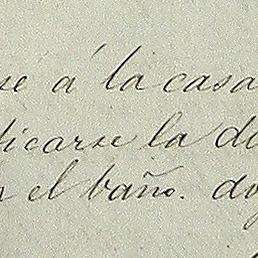 se á la casa
dicarse la
n el baño.